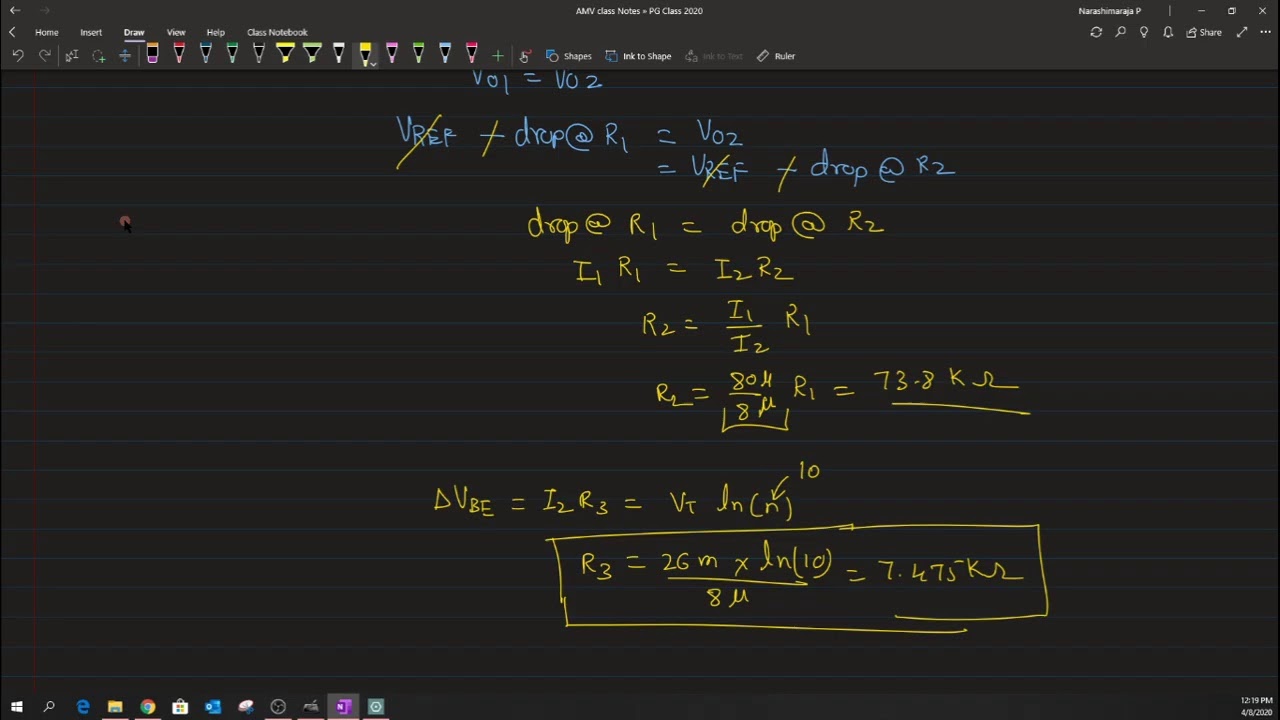 AMV class Notes » PG Class 2020
Narashimaraja P
Home Insert Draw View Help Class Notebook
Share
Shapes Ink to Shape Ink to Text Ruler
VO1 = VO2
VREF - drop@ R1 = VO2
= VREF - drop @ R2
drop@ R1 = drop @ R2
I1 R1 = I2 R2
R2 = I1/I2 R1
R2 = 80μ/8μ R1 = 73.8 K Ω
10
ΔVBE = I2 R3 = VT ln(n)
R3 = 26m x ln(10)/8μ = 7.475KΩ
12:19 PM
4/8/2020